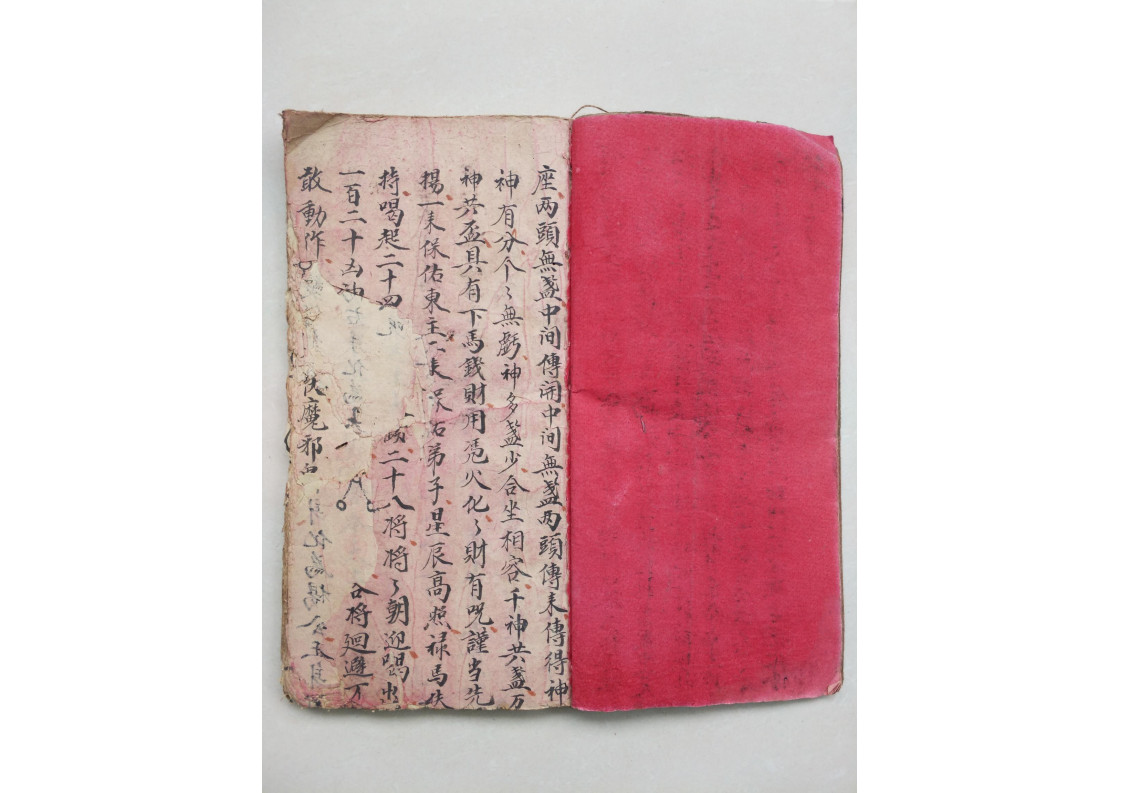 座两頭無盞中间傳開中间無盞两頭傳来傳得神
神有分个々無虧神多盞少合坐相容千神共盞万
神共盃具有下馬錢財用凭火化々財有咒謹当先
揚一来保佑東主二来保佑弟子星辰高照禄馬扶
持喝起二十四 二十八将将々朝迎喝出
一百二十凶神 合将廻避不
敢動作 伏魔邪